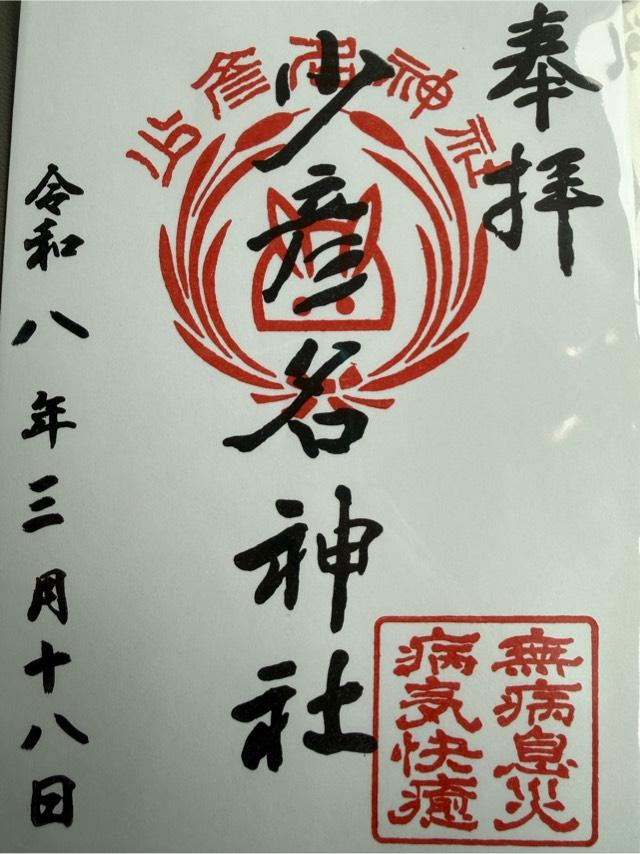 奉拝
少彦名神社
少彦名神社
無病息災
病気快癒
令和八年三月十八日